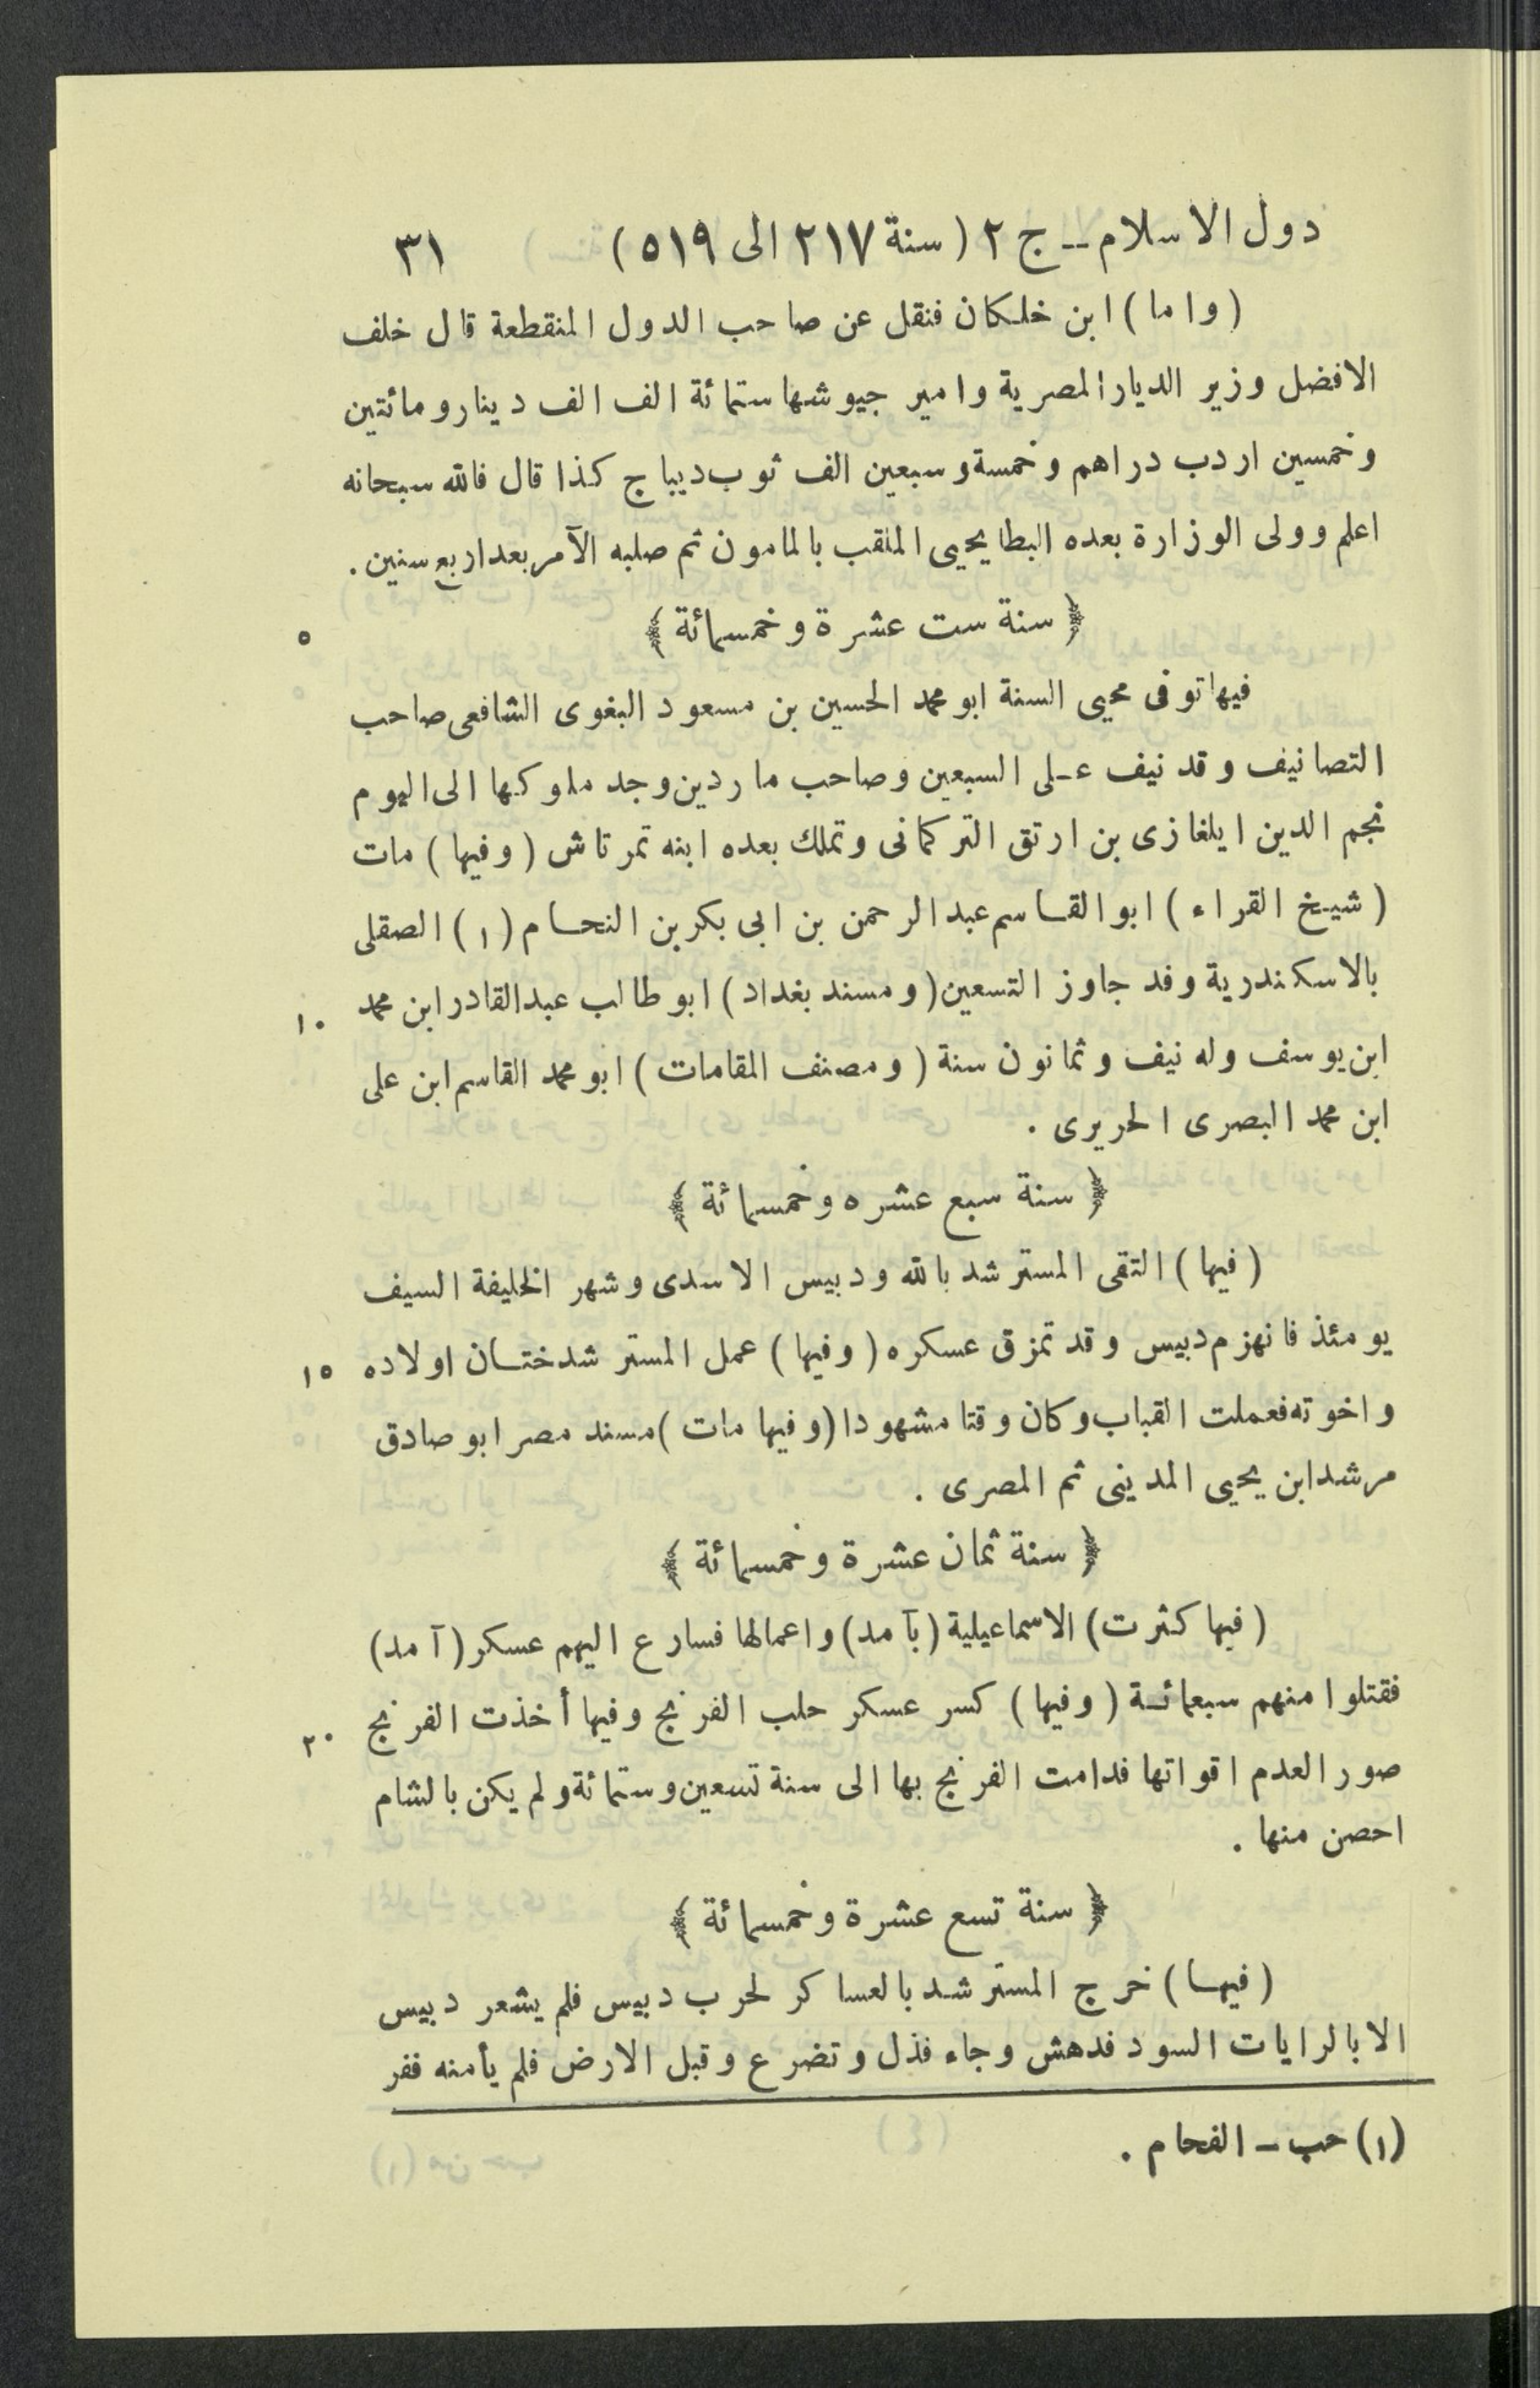 دول الاسلام – ج ٢ ( سنة ٢١٧ الى ٥١٩ ) ٣١
( واما ) ابن خلكان فنقل عن صاحب الدول المنقطعة قال خلف
الافضل وزير الديار المصرية وامير جيوشها ستمائة الف الف دينار ومائتين
وخمسين اردب دراهم وخمسة وسبعين الف ثوب ديباج كذا قال فالله سبحانه
اعلم وولى الوزارة بعده البطايحيى الملقب بالمامون ثم صلبه الآمر بعد اربع سنين .
﴿ سنة ست عشرة وخمسمائة ﴾ ٥
فيها توفى محيى السنة ابو محمد الحسين بن مسعود البغوى الشافعى صاحب
التصانيف وقد نيف على السبعين وصاحب ماردين وجد ملوكها الى اليوم
نجم الدين ايلغازى بن ارتق التركمانى وتملك بعده ابنه تمرتاش ( وفيها ) مات
( شيخ القراء ) ابو القاسم عبد الرحمن بن ابى بكر بن النحام (١) الصقلى
بالاسكندرية وفد جاوز التسعين ( ومسند بغداد ) ابو طالب عبد القادر ابن محمد ١٠
ابن يوسف وله نيف وثمانون سنة ( ومصنف المقامات ) ابو محمد القاسم ابن على
ابن محمد البصرى الحريرى .
﴿ سنة سبع عشره وخمسمائة ﴾
( فيها ) التقى المسترشد بالله ودبيس الاسدى وشهر الخليفة السيف
يومئذ فانهزم دبيس وقد تمزق عسكره ( وفيها ) عمل المسترشد ختان اولاده ١٥
واخوته فعملت القباب وكان وقتا مشهودا ( وفيها مات ) مسند مصر ابو صادق
مرشد ابن يحيى المدينى ثم المصرى .
﴿ سنة ثمان عشرة وخمسمائة ﴾
( فيها كثرت ) الاسماعيلية ( بآمد ) واعمالها فسارع اليهم عسكر ( آمد )
فقتلوا منهم سبعمائة ( وفيها ) كسر عسكر حلب الفرنج وفيها أخذت الفرنج ٢٠
صور العدم اقواتها فدامت الفرنج بها الى سنة تسعين وستمائة ولم يكن بالشام
احصن منها .
﴿ سنة تسع عشرة وخمسمائة ﴾
( فيها ) خرج المسترشد بالعساكر لحرب دبيس فلم يشعر دبيس
الا بالرايات السود فدهش وجاء فذل وتضرع وقبل الارض فلم يأمنه ففر
(١) حب – الفحام .